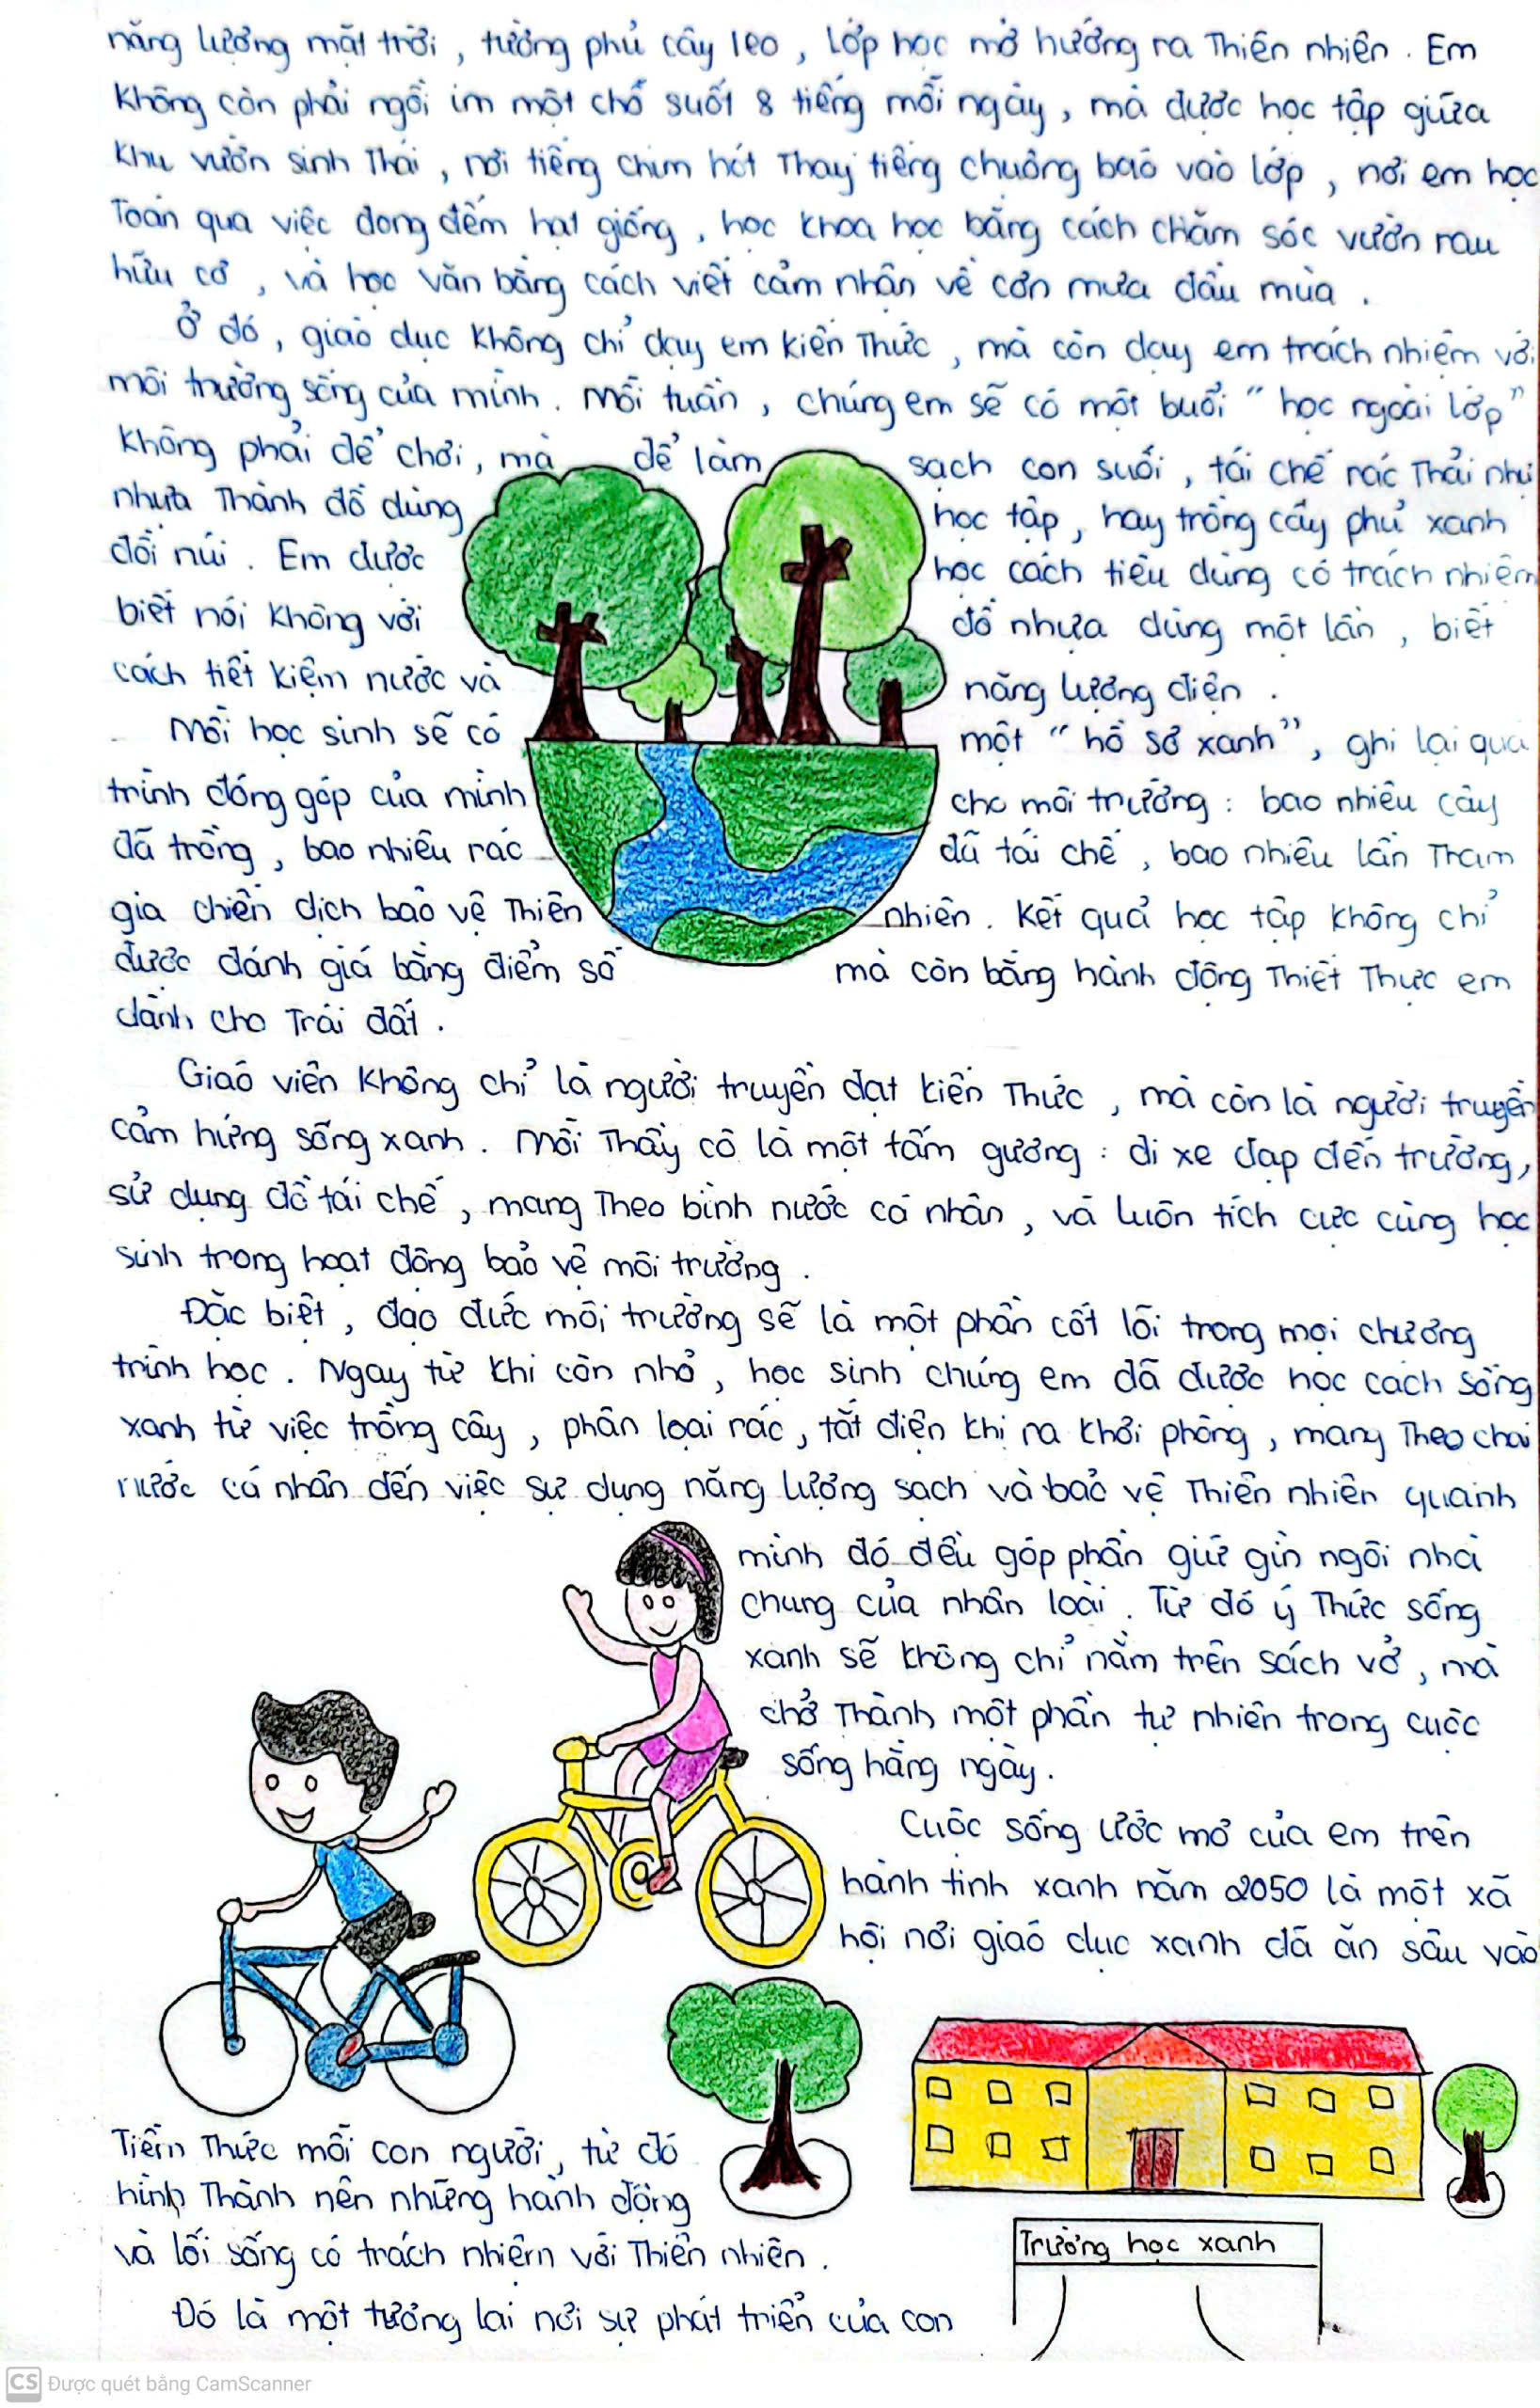 năng lượng mặt trời, tường phủ cây leo, lớp học mở hướng ra Thiên nhiên. Em
Không còn phải ngồi im một chỗ suốt 8 tiếng mỗi ngày, mà được học tập giữa
Khu vườn sinh Thái, nơi tiếng chim hót Thay tiếng chuông báo vào lớp, nơi em học
Toán qua việc đong đếm hạt giống, học khoa học bằng cách chăm sóc vườn rau
hữu cơ, và học văn bằng cách viết cảm nhận về cơn mưa đầu mùa.
Ở đó, giáo dục không chỉ dạy em kiến Thức, mà còn dạy em trách nhiệm với
môi trường sống của mình. Mỗi tuần, chúng em sẽ có một buổi "học ngoài lớp"
Không phải để chơi, mà để làm sạch con suối, tái chế rác Thải như
nhựa Thành đồ dùng học tập, hay trồng cây phủ xanh
đồi núi. Em được học cách tiêu dùng có trách nhiệm
biết nói không với đồ nhựa dùng một lần, biết
cách tiết kiệm nước và năng lượng điện.
Mỗi học sinh sẽ có một "hồ sơ xanh", ghi lại quá
trình đóng góp của mình cho môi trường: bao nhiêu cây
đã trồng, bao nhiêu rác đã tái chế, bao nhiêu lần Tham
gia chiến dịch bảo vệ Thiên nhiên. Kết quả học tập không chỉ
được đánh giá bằng điểm số mà còn bằng hành động Thiết Thực em
dành cho Trái đất.
Giáo viên không chỉ là người truyền đạt kiến Thức, mà còn là người truyền
cảm hứng sống xanh. Mỗi Thầy cô là một tấm gương: đi xe đạp đến trường,
sử dụng đồ tái chế, mang Theo bình nước cá nhân, và luôn tích cực cùng học
sinh trong hoạt động bảo vệ môi trường.
Đặc biệt, đạo đức môi trường sẽ là một phần cốt lõi trong mọi chương
trình học. Ngay từ khi còn nhỏ, học sinh chúng em đã được học cách sống
xanh từ việc trồng cây, phân loại rác, tắt điện khi ra khỏi phòng, mang Theo chai
nước cá nhân đến việc sự dụng năng lượng sạch và bảo vệ Thiên nhiên quanh
mình đó đều góp phần giữ gìn ngôi nhà
chung của nhân loài. Từ đó ý Thức sống
xanh sẽ không chỉ nằm trên sách vở, mà
chở Thành một phần tự nhiên trong cuộc
sống hằng ngày.
Cuộc sống ước mơ của em trên
hành tinh xanh năm 2050 là một xã
hội nơi giáo dục xanh đã ăn sâu vào
Tiềm Thức mỗi con người, từ đó
hình Thành nên những hành động
và lối sống có trách nhiệm với Thiên nhiên.
Đó là một tương lai nơi sự phát triển của con
Trường học xanh
CS Được quét bằng CamScanner